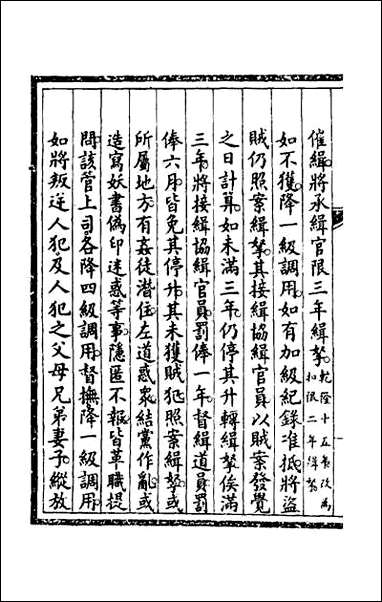 催緝將承緝官限三年緝拏乾隆十五年改為扣限二年緝拏
如不獲降一級調用如有加級紀錄准抵將盜
賊仍照案緝拏其接緝協緝官員以賊案發覺
之日計算如未滿三年仍停其升轉緝拏俟滿
三年將接緝協緝官員罰俸一年督緝道員罰
俸六月皆免其停升其未獲賊犯照案緝拏或
所屬地方有姦徒潛住左道惑衆結黨作亂或
造寫妖書偽印迷惑等事隱匿不報皆革職提
問該管上司各降四級調用督撫降一級調用
如將叛逆人犯及人犯之父母兄弟妻子縱放